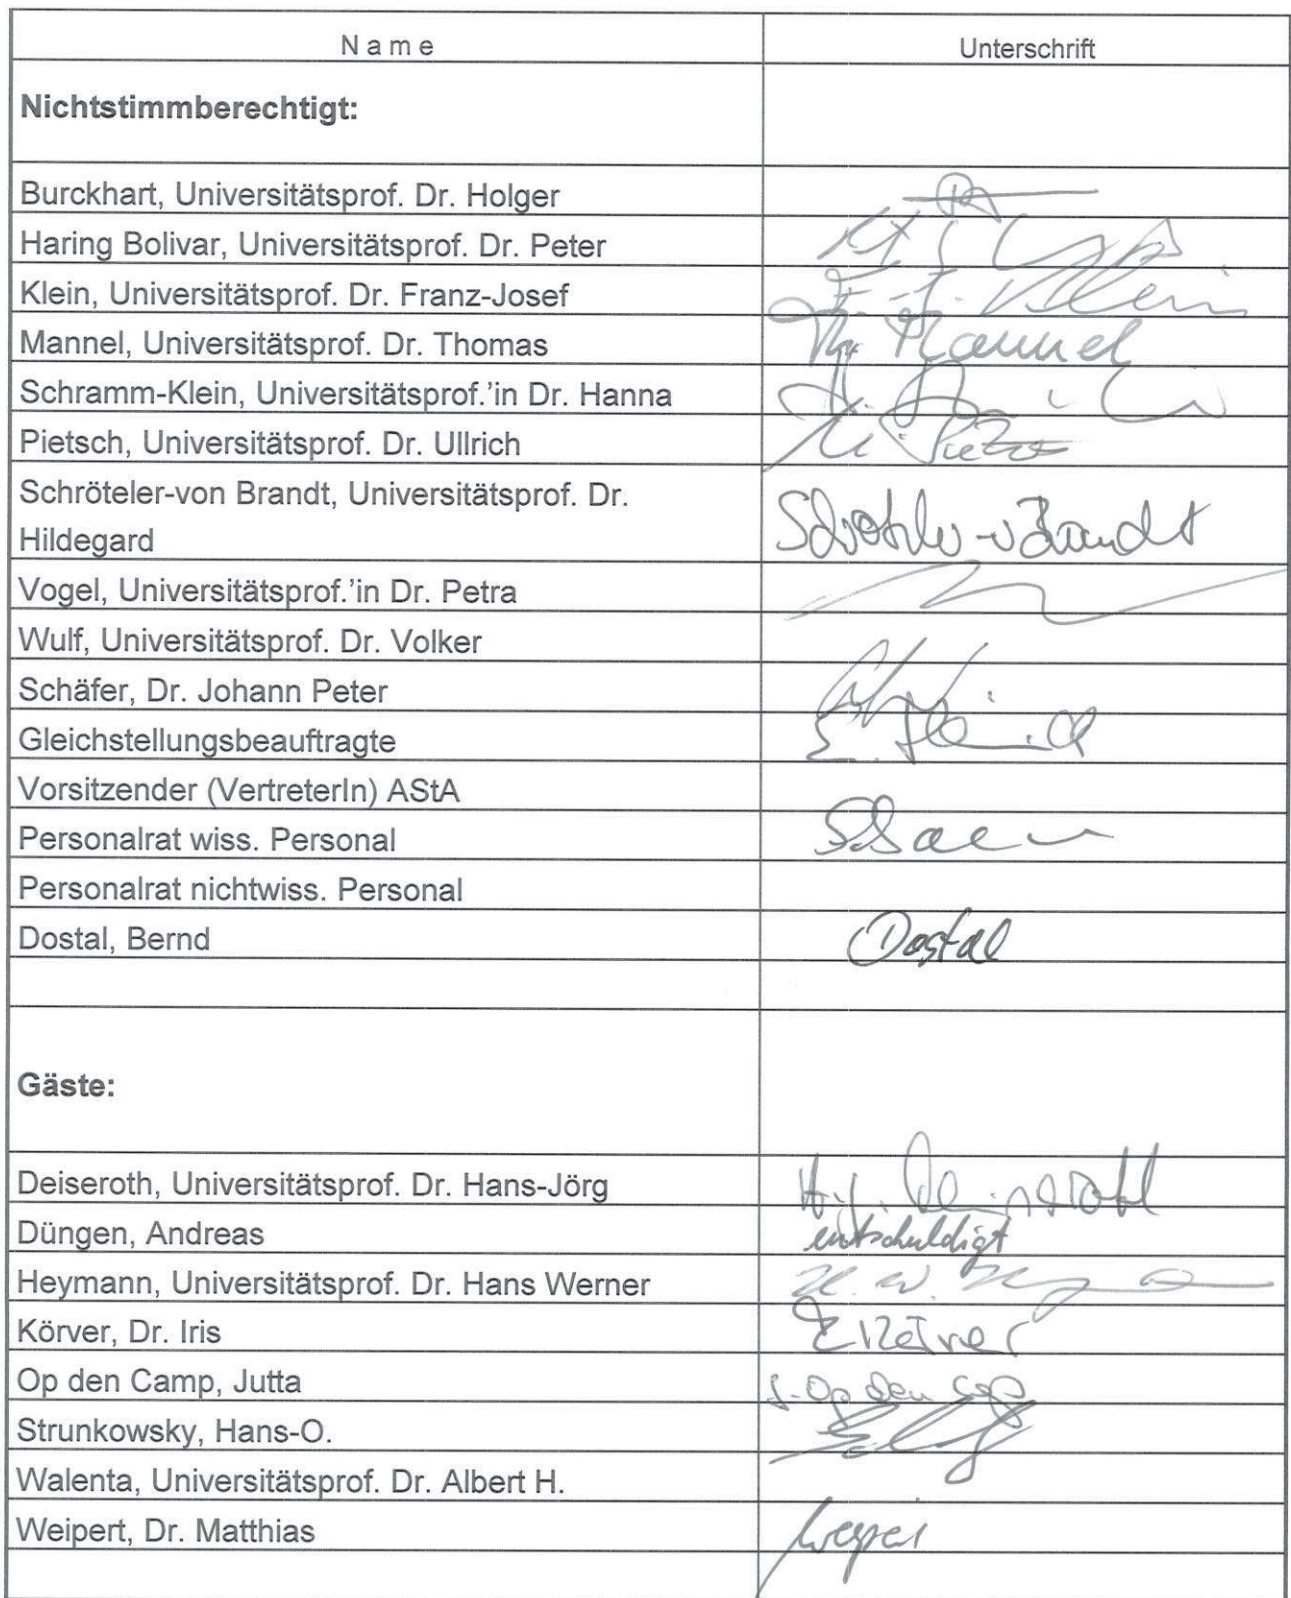 Name Unterschrift
Nichtstimmberechtigt:
Burckhart, Universitätsprof. Dr. Holger
Haring Bolivar, Universitätsprof. Dr. Peter
Klein, Universitätsprof. Dr. Franz-Josef F.-J. Klein
Mannel, Universitätsprof. Dr. Thomas Th. Mannel
Schramm-Klein, Universitätsprof.'in Dr. Hanna
Pietsch, Universitätsprof. Dr. Ullrich
Schröteler-von Brandt, Universitätsprof. Dr.
Hildegard
Vogel, Universitätsprof.'in Dr. Petra
Wulf, Universitätsprof. Dr. Volker
Schäfer, Dr. Johann Peter
Gleichstellungsbeauftragte
Vorsitzender (VertreterIn) AStA
Personalrat wiss. Personal
Personalrat nichtwiss. Personal
Dostal, Bernd Dostal
Gäste:
Deiseroth, Universitätsprof. Dr. Hans-Jörg
Düngen, Andreas entschuldigt
Heymann, Universitätsprof. Dr. Hans Werner
Körver, Dr. Iris
Op den Camp, Jutta
Strunkowsky, Hans-O.
Walenta, Universitätsprof. Dr. Albert H.
Weipert, Dr. Matthias